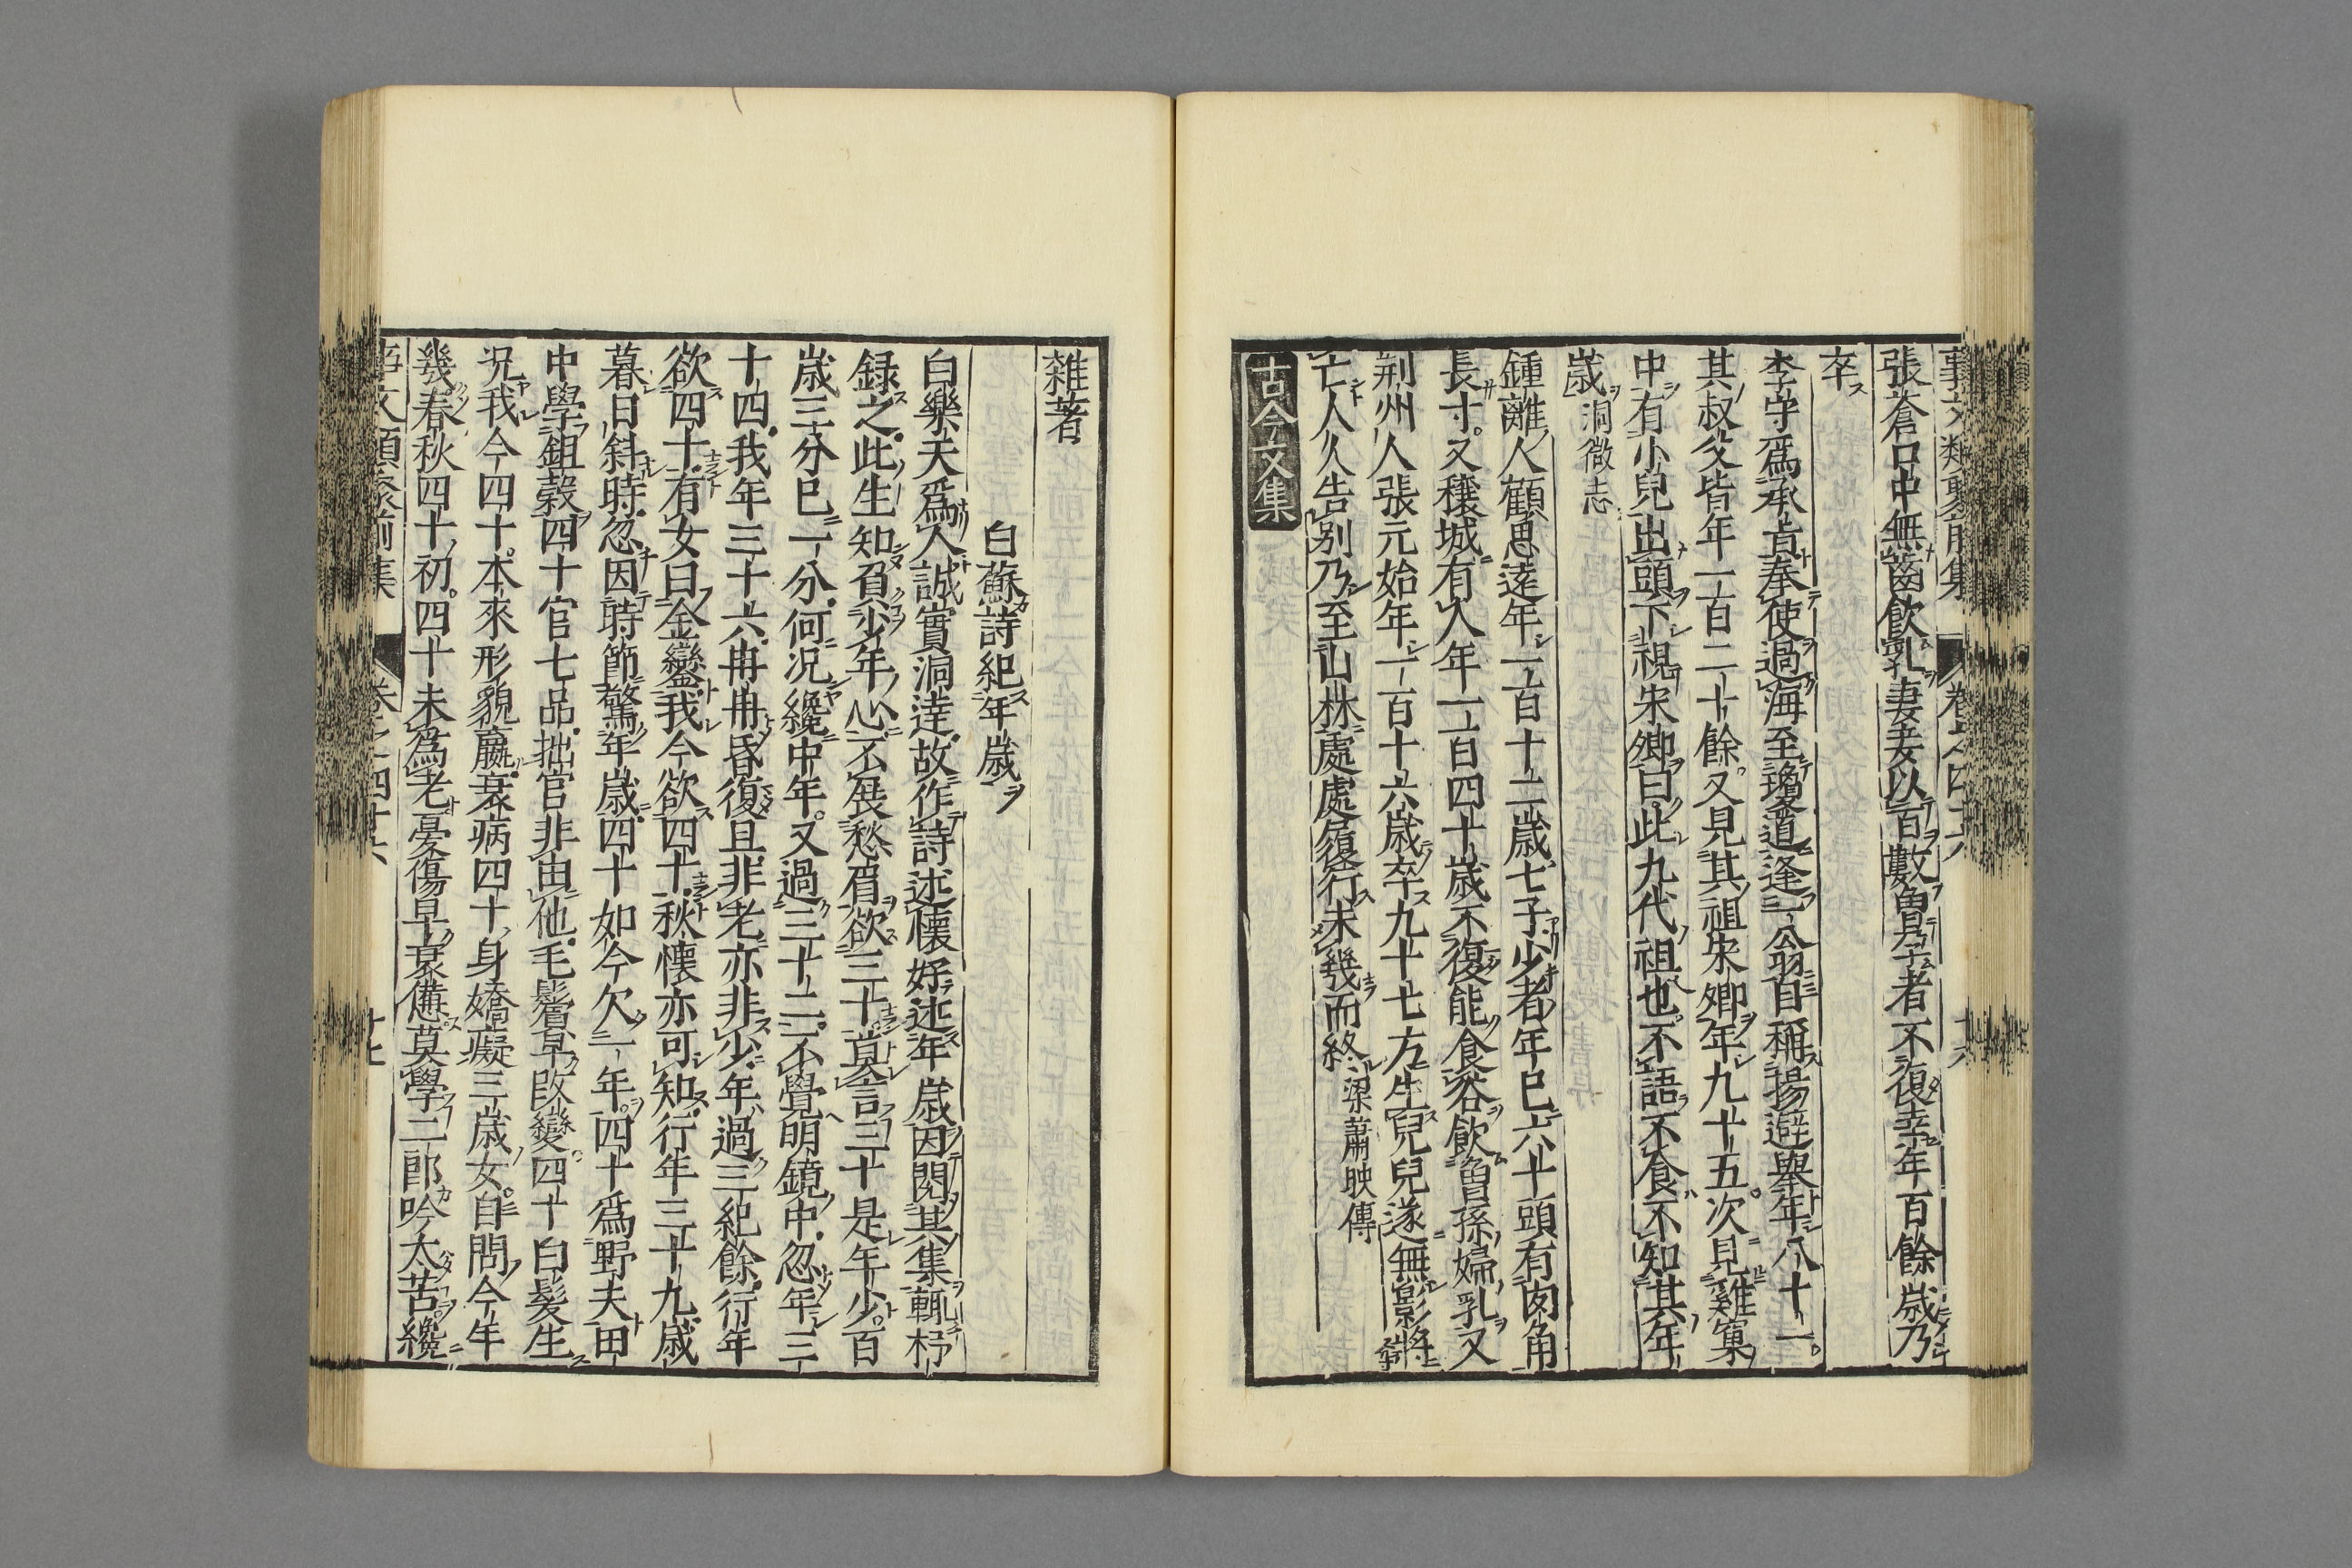 事文類聚前集 卷之四十六 十六
張蒼口中無齒飮乳妻妾以百數曽孕者不復幸年百餘歳乃
卒
李守爲承旨奉使過海至瓊道逢一翁自稱揚避舉年八十一
其叔父皆年一百二十餘又見其祖宋卿年九十五次見雞窠
中有小兒出頭下視宋卿曰此九代祖也不語不食不知其年
歳 洞微志
鍾離人顧思遠年一百十二歳七子少者年已六十頭有肉角
長寸又穰城有人年一百四十歳不復能食谷飮曽孫婦乳又
荊州人張元始年一百十六歳卒九十七方生兒兒遂無影將
亡人人告別乃至山林處處履行未幾而終 梁蕭映傳
古今文集
雜著
白蘇詩紀年歳
白樂天爲人誠實洞達故作詩述懷好述年歳因閱其集輒杼
録之此生知負少年心不展愁眉欲三十莫言三十是年少百
歳三分已一分何況纔中年又過三十二不覺明鏡中忽年三
十四我年三十六冉冉昏復且非老亦非少年過三紀餘行年
欲四十有女曰金鑾我今欲四十秋懷亦可知行年三十九歳
暮日斜時忽因時節驚年歳四十如今欠一年四十爲野夫田
中學鉏穀四十官七品拙官非由他毛鬢早改變四十白髮生
況我今四十本來形貌羸衰病四十身嬌癡三歳女自問今年
幾春秋四十初四十未爲老憂傷早衰憊莫學二郎吟太苦纔
事文類聚前集 卷之四十六 十七